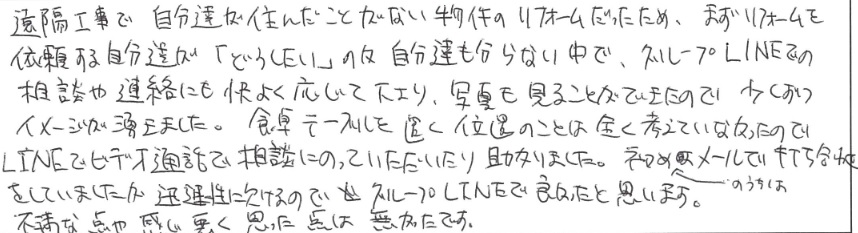 遠隔工事で自分達が住んだことがない物件のリフォームだったため、まずリフォームを
依頼する自分達が「どうしたい」のか自分達も分らない中で、グループLINEでの
相談や連絡にも快よく応じて下さり、写真も見ることができたので少しずつ
イメージが湧きました。食卓テーブルを置く位置のことは全く考えていなかったので
LINEでビデオ通話で相談にのっていただいたり助かりました。初めのうちはメールで打ち合わせ
をしていましたが迅速性に欠けるのでグループLINEで良かったと思います。
不満な点や感じ悪く思った点は無かったです。